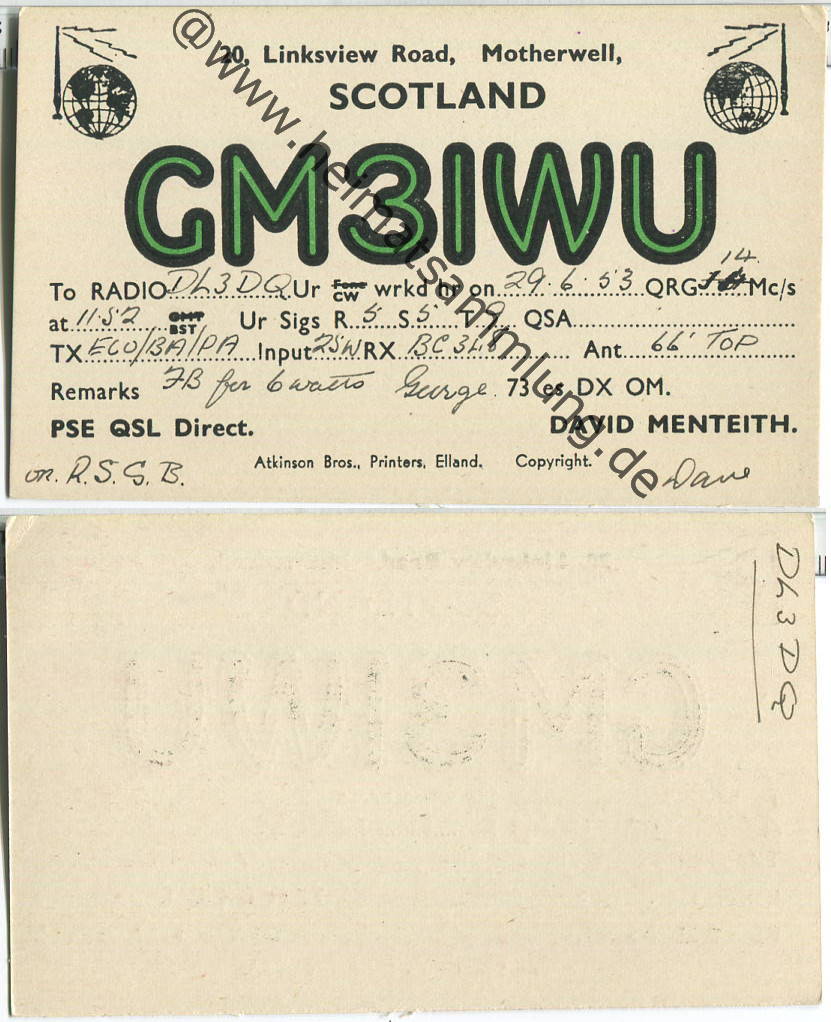 20, Linksview Road, Motherwell,
SCOTLAND
GM3IWU
To RADIO DL3DQ Ur Fone CW wrkd hr on 29.6.53 QRG 14 Mc/s
at 11.52 GMT BST Ur Sigs R 5 S 5 T 9 QSA
TX ECO/BA/PA Input 25W RX BC348 Ant 66' TOP
Remarks FB for 6 watts George. 73 es DX OM.
PSE QSL Direct. DAVID MENTEITH.
or. R.S.G.B. Atkinson Bros., Printers, Elland. Copyright. Dave
@www.heimatsammlung.de
DL3DQ